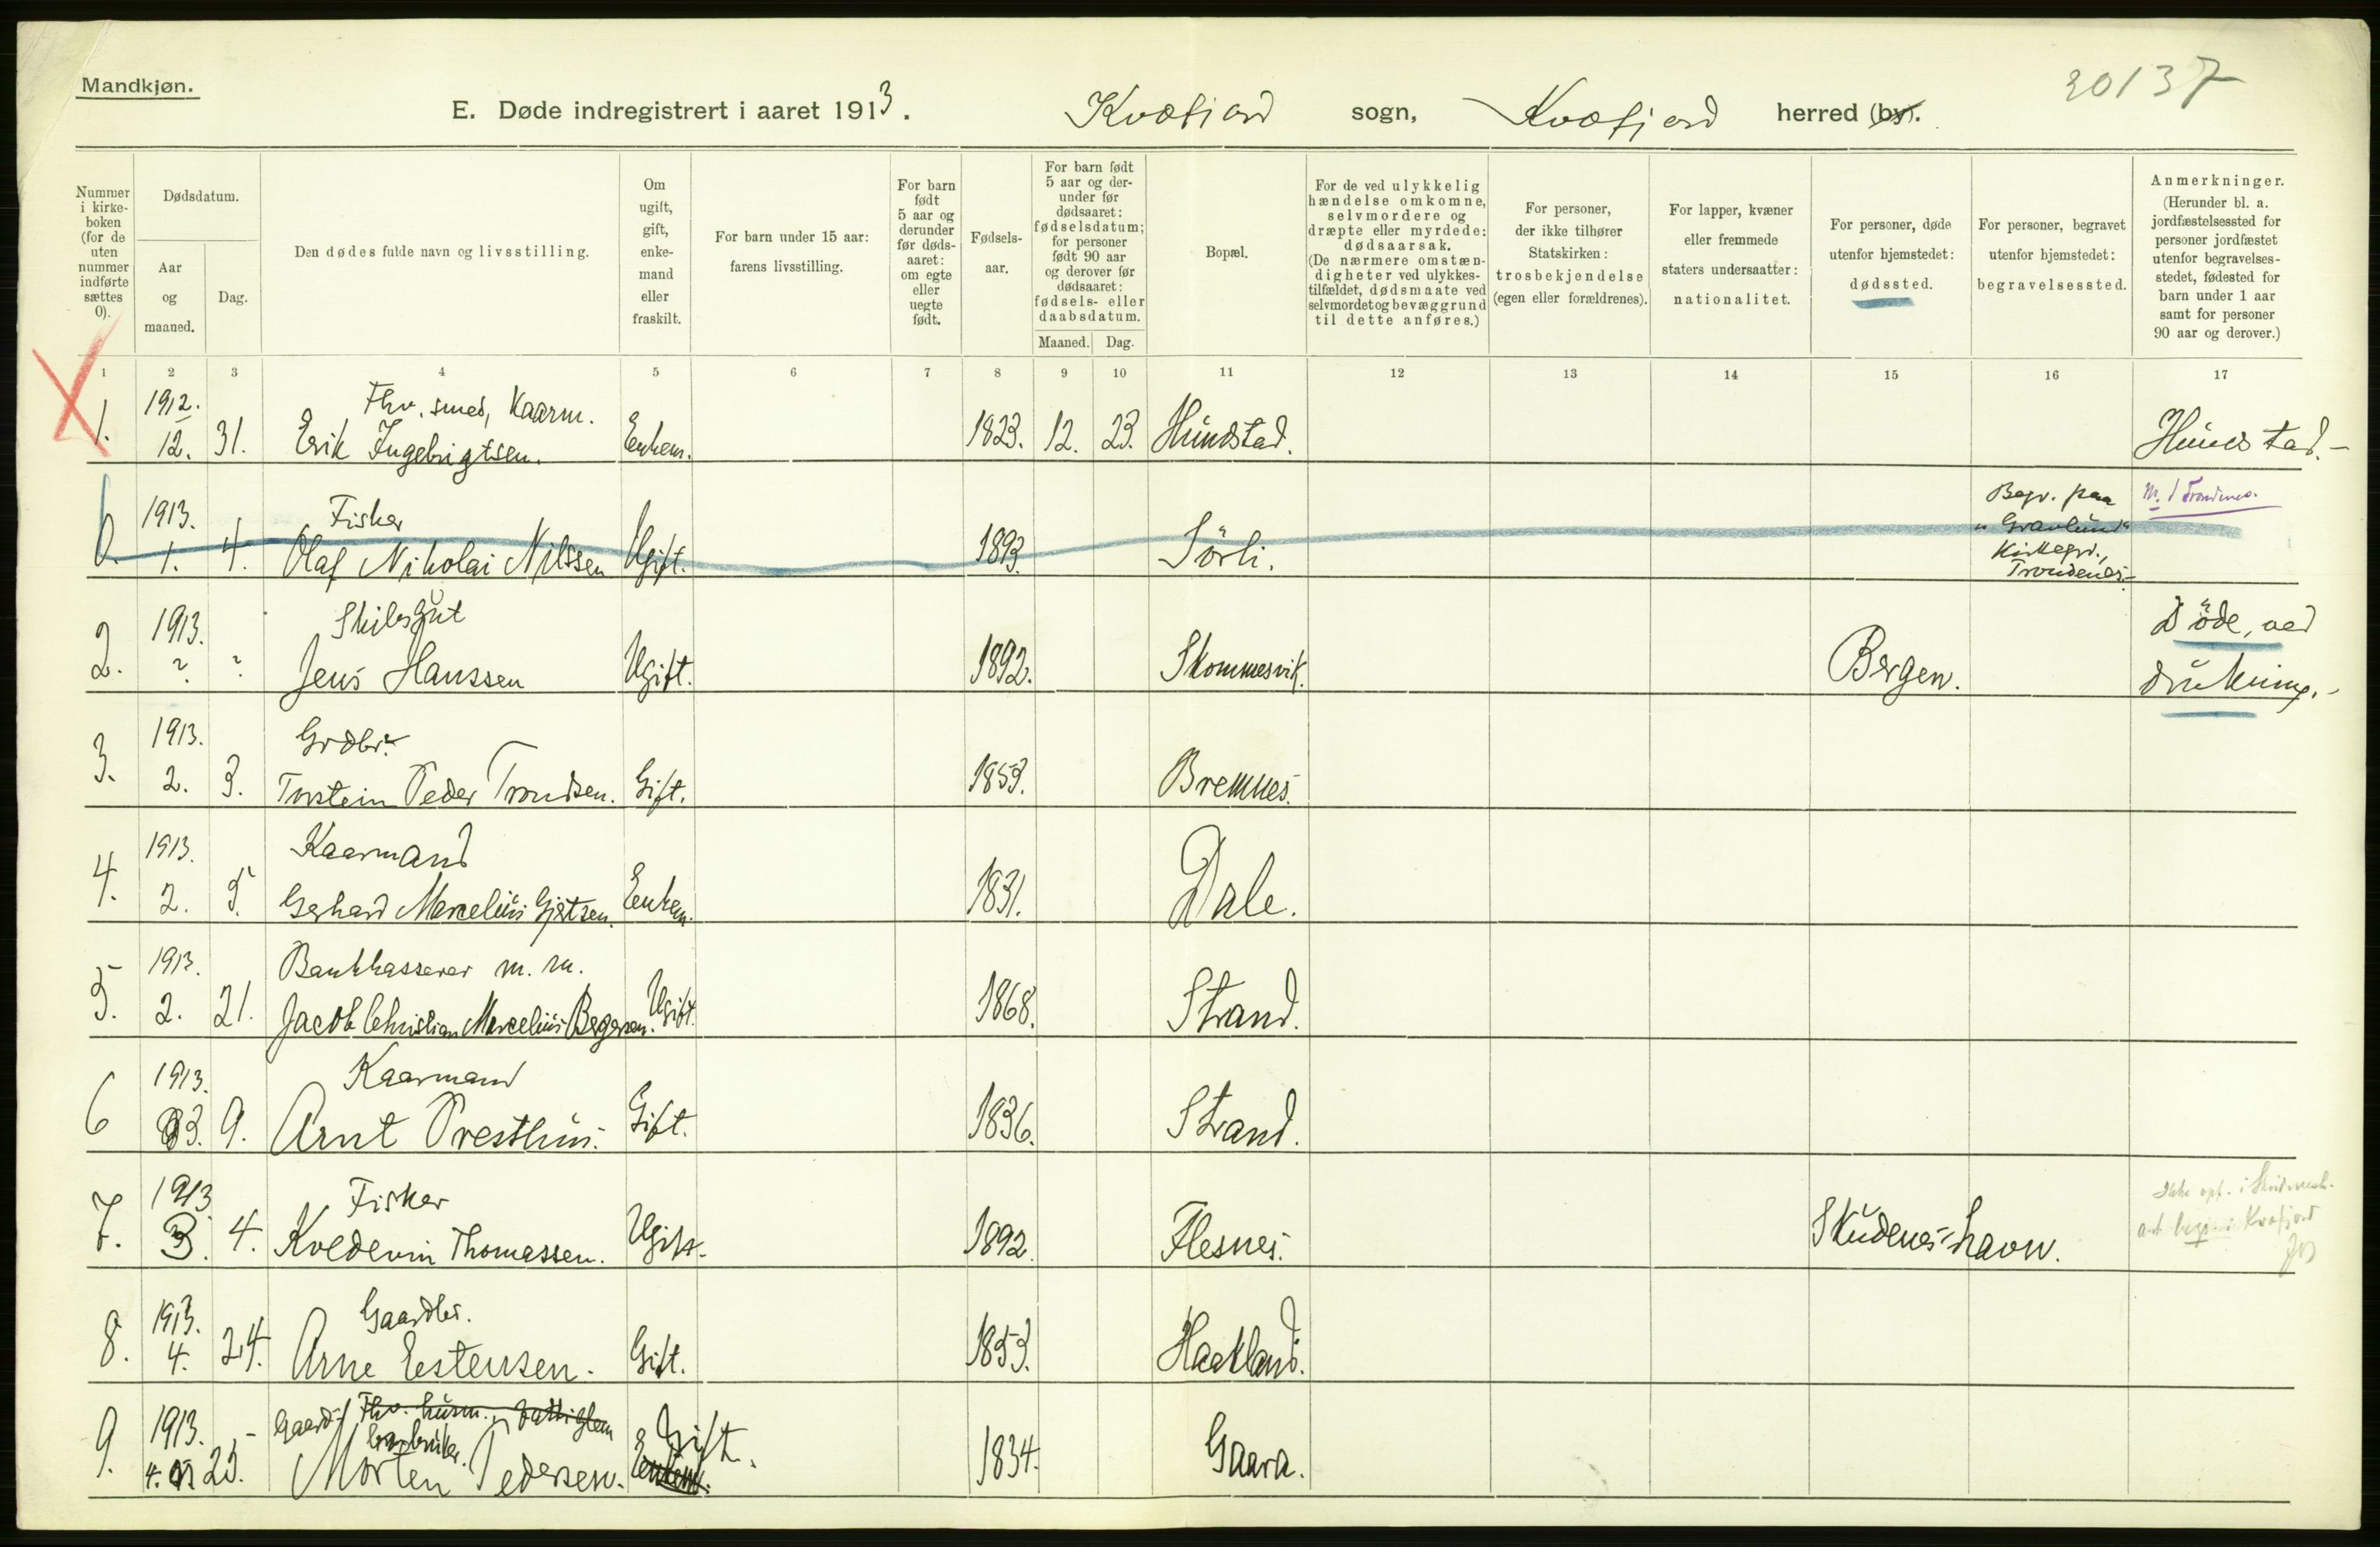 Mandkjøn.
E. Døde indregistrert i aaret 1913. Kvæfjord sogn, Kvæfjord herred (by).
20137
Nummer i kirke-boken (for de uten nummer indførte sættes 0).
Dødsdatum.
Aar og maaned.
Dag.
Den dødes fulde navn og livsstilling.
Om ugift, gift, enke-mand eller fraskilt.
For barn under 15 aar: farens livsstilling.
For barn født 5 aar og derunder før døds-aaret: om egte eller uegte født.
Fødsels-aar.
For barn født 5 aar og der-under før dødsaaret: fødselsdatum; for personer født 90 aar og derover før dødsaaret: fødsels- eller daabsdatum.
Maaned. Dag.
Bopæl.
For de ved ulykkelig hændelse omkomne, selvmordere og dræpte eller myrdede: dødsaarsak. (De nærmere omstæn-digheter ved ulykkes-tilfældet, dødsmaate ved selvmordet og bevæggrund til dette anføres.)
For personer, der ikke tilhører Statskirken: trosbekjendelse (egen eller forældrenes).
For lapper, kvæner eller fremmede staters undersaatter: nationalitet.
For personer, døde utenfor hjemstedet: dødssted.
For personer, begravet utenfor hjemstedet: begravelsessted.
Anmerkninger. (Herunder bl. a. jordfæstelsessted for personer jordfæstet utenfor begravelses-stedet, fødested for barn under 1 aar samt for personer 90 aar og derover.)
1 2 3 4 5 6 7 8 9 10 11 12 13 14 15 16 17
1912. Fhv. smed, Kaarm.
1. 12. 31. Erik Ingebrigtsen. Enkem. 1823. 12. 23. Hundstad. Hundstad.-
1913. Fisker Begr. paa
"Gravlund"
Kirkegr.,
Trondenes.
0. 1. 4. Olaf Nikolai Nilssen Ugift. 1893. Sörli. M. i Trondenes.
1913. Skibsgut Döde, ved
2. ? ? Jens Hanssen Ugift. 1892. Skommesvik. Bergen. drukning.-
1913. Grdbr.
3. 2. 3. Torstein Peder Trondsen. Gift. 1853. Bremnes.
1913. Kaarmand
4. 2. 5. Gerhard Marcelius Gjertsen. Enkem. 1831. Dale.
1913. Bankkasserer m. m.
5. 2. 21. Jacob Christian Marcelius Bergersen. Ugift. 1868. Strand.
1913. Kaarmand
6 3. 9. Arnt Presthus. Gift. 1836. Strand.
1913 Fisker
7. 3. 4. Kvedevin Thomassen. Ugift. 1892. Flesnes. Skudenes-havn. Ikke opf. i Skudenesh.
ant. begr. i Kvæfjord
1913. Gaardbr.
8. 4. 24. Arne Estensen. Gift. 1853. Haakland.
1913. Gaard- Fhv. husm., Fattiglem
bruker. Gift.
9. 4. 23. Morten Pedersen. Enkem. 1834. Gaara.